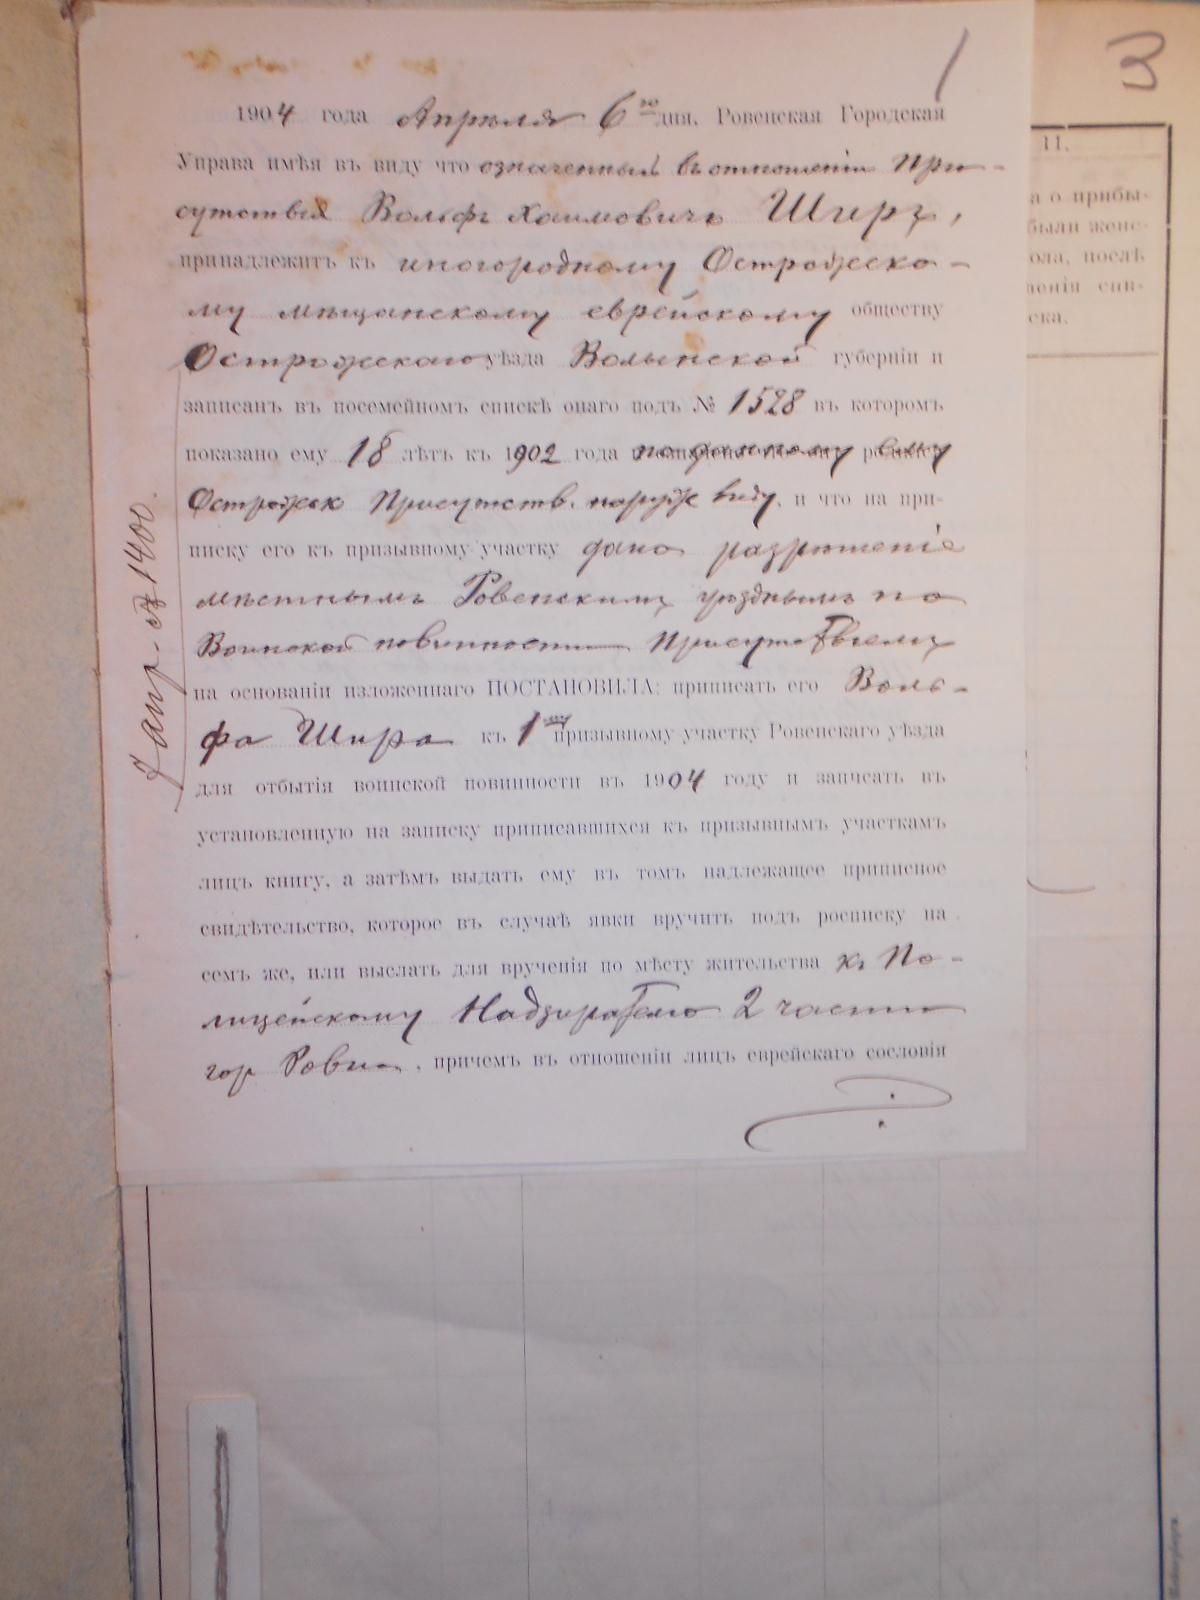 1
3
1904 года Апреля 6го дня, Ровенская Городская
Управа имѣя въ виду что означенный въ отношеніи При-
сутствія Вольфъ Хаимовичъ Ширъ,
принадлежитъ къ иногородному Острожско-
му мѣщанскому еврейскому обществу
Острожскаго уѣзда Волынской губерніи и
записанъ въ посемейномъ спискѣ онаго подъ № 1528 въ которомъ
показано ему 18 лѣтъ къ 1902 года по данному ему
Острожск Присутств. наруж виду, и что на при-
писку его къ призывному участку дано разрѣшеніе
мѣстнымъ Ровенскимъ уѣзднымъ по
Воинской повинности Присутствіемъ
на основаніи изложеннаго ПОСТАНОВИЛА: приписать его Воль-
фа Шира къ 1му призывному участку Ровенскаго уѣзда
для отбытія воинской повинности въ 1904 году и записать въ
установленную на записку приписавшихся къ призывнымъ участкамъ
лицъ книгу, а затѣмъ выдать ему въ томъ надлежащее приписное
свидѣтельство, которое въ случаѣ явки вручить подъ росписку на
семъ же, или выслать для врученія по мѣсту жительства къ По-
лицейскому Надзирателю 2 части
гор Ровна, причемъ въ отношеніи лицъ еврейскаго сословія
1400.
11.
а о прибы-
были женс-
ола, послѣ
енія спи-
ска.